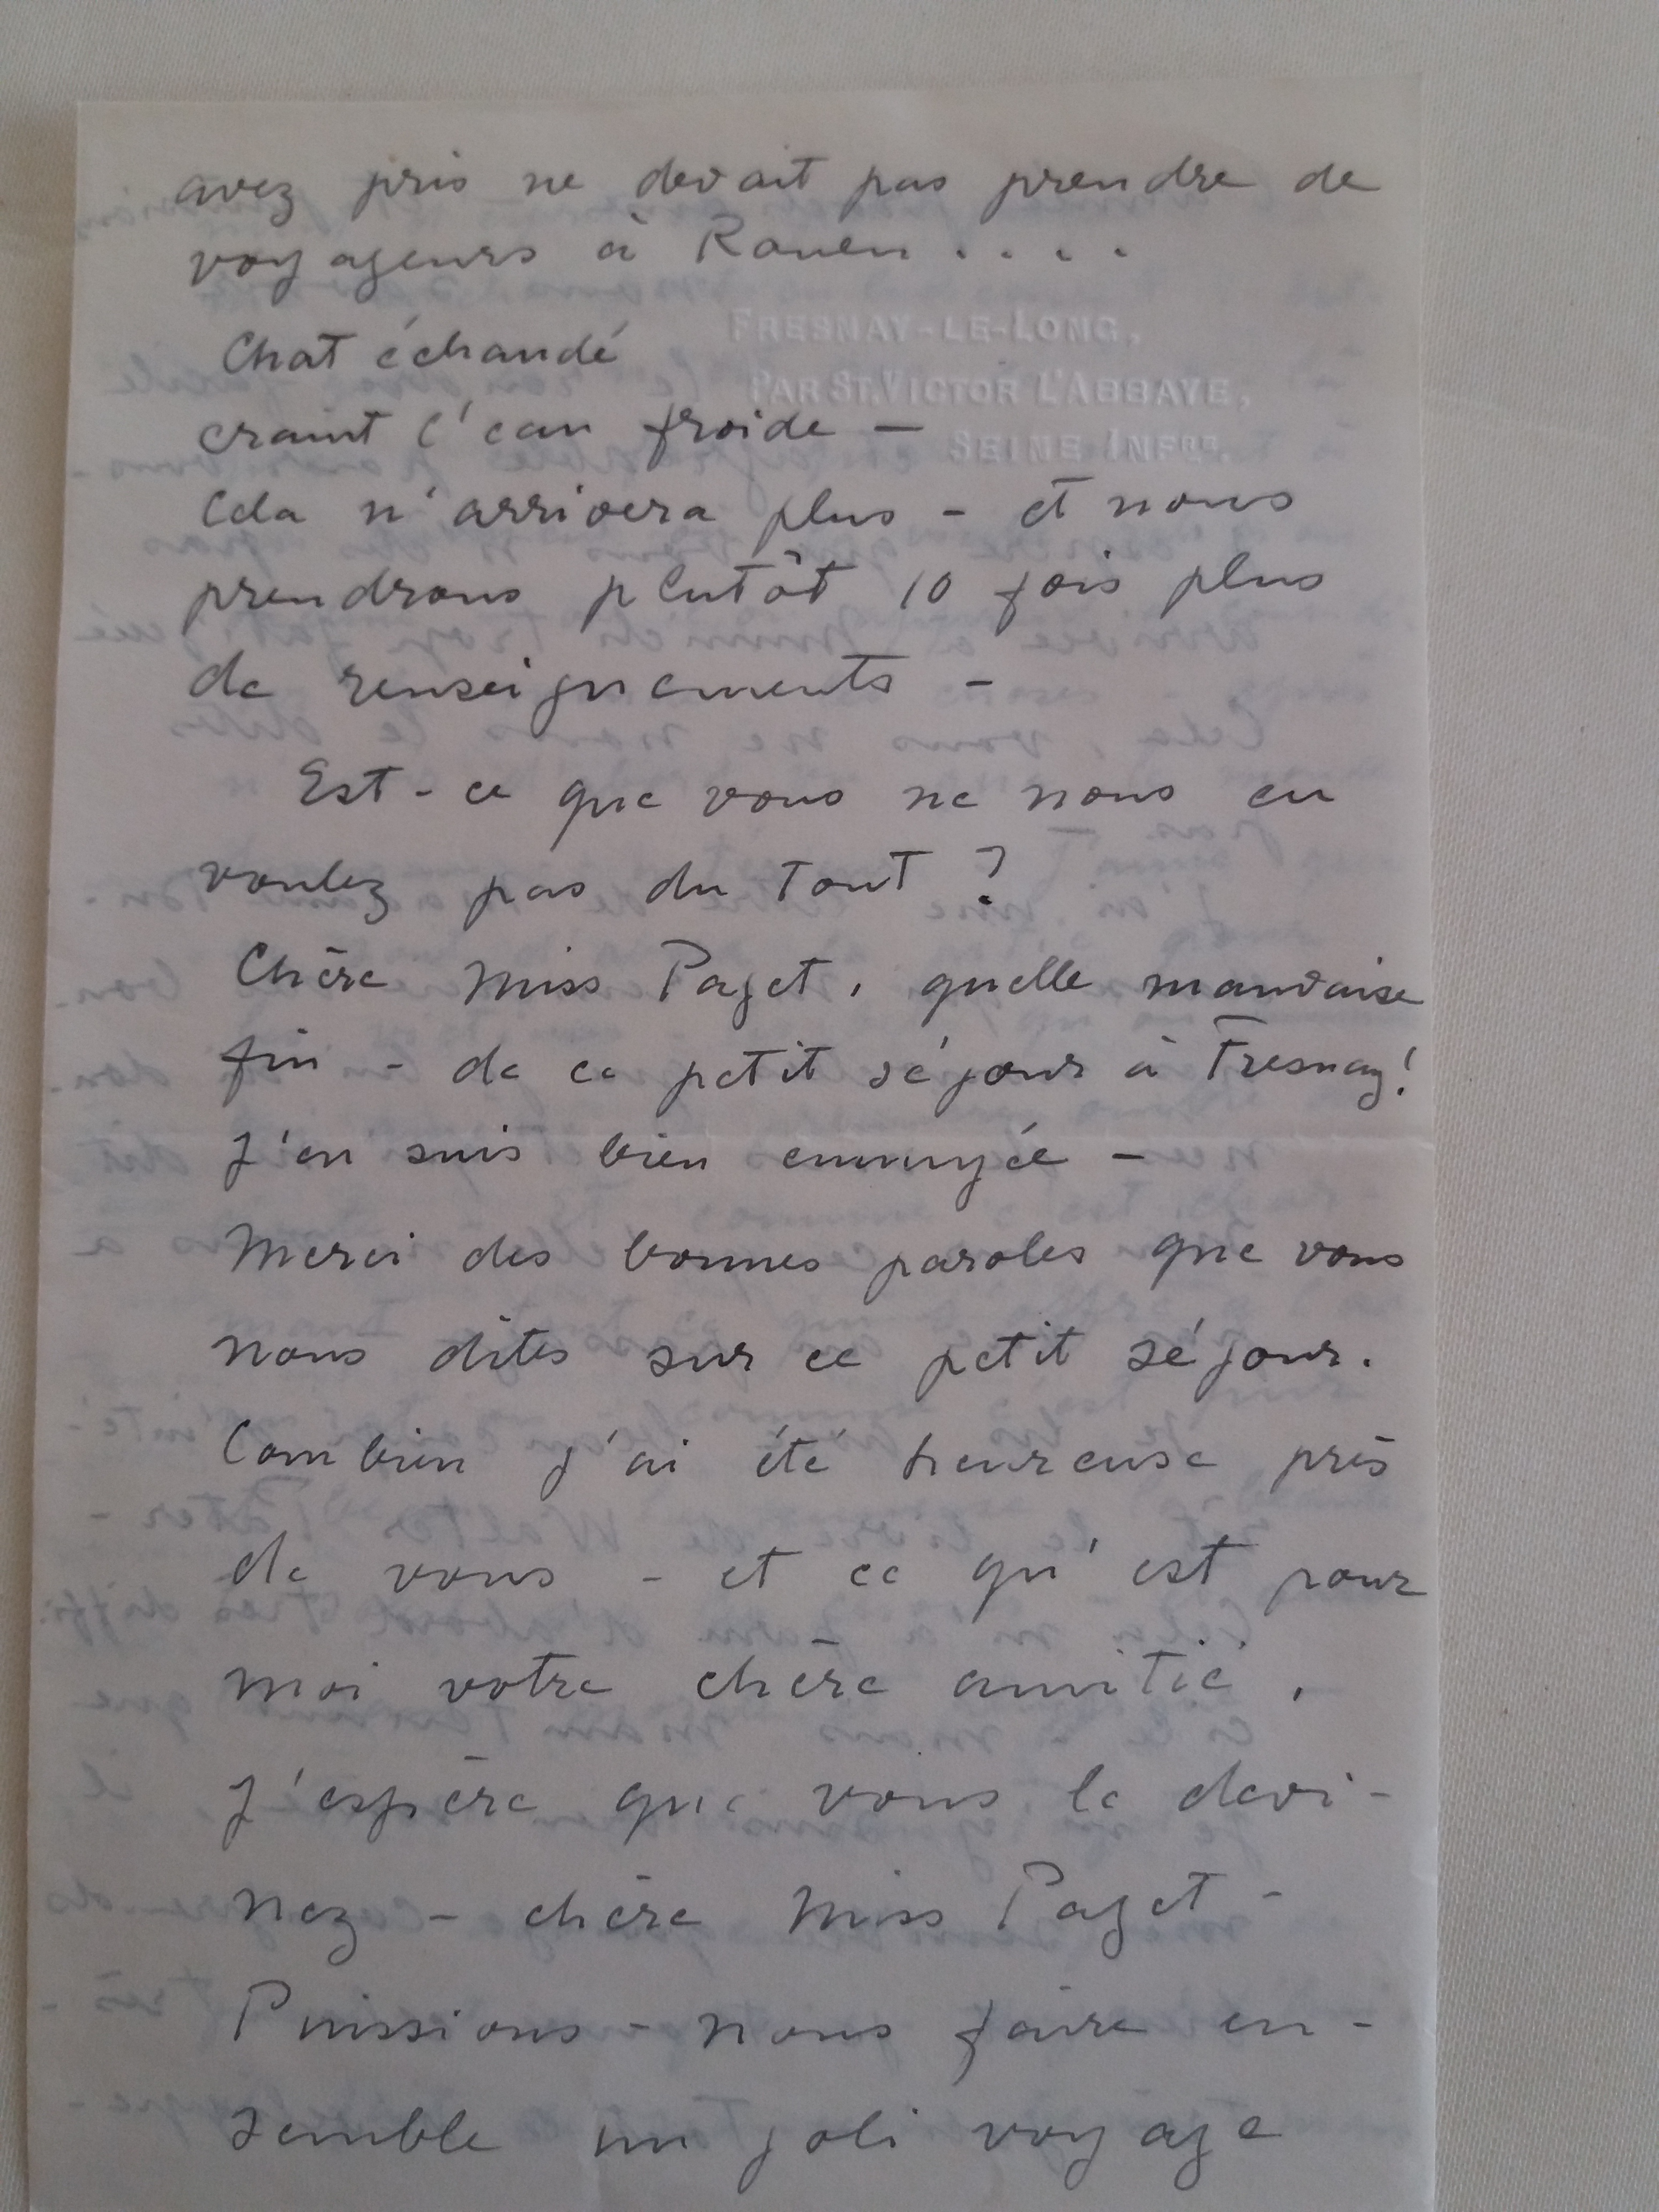 avez pris ne devait pas prendre de
voyageurs à Rouen . . . .
FRESNAY-LE-LONG,
PAR ST. VICTOR L'ABBAYE,
SEINE INFRE.
Chat échaudé
craint l'eau froide —
Cela n'arrivera plus - et nous
prendrons plutôt 10 fois plus
de renseignements -
Est-ce que vous ne nous en
voulez pas du tout ?
Chère Miss Paget, quelle mauvaise
fin - de ce petit séjour à Fresnay!
J'en suis bien ennuyée -
Merci des bonnes paroles que vous
nous dites sur ce petit séjour.
Combien j'ai été heureuse près
de vous - et ce qu'est pour
moi votre chère amitié,
j'espère que vous le devi-
nez - chère Miss Paget -
Puissions-nous faire en-
semble un joli voyage